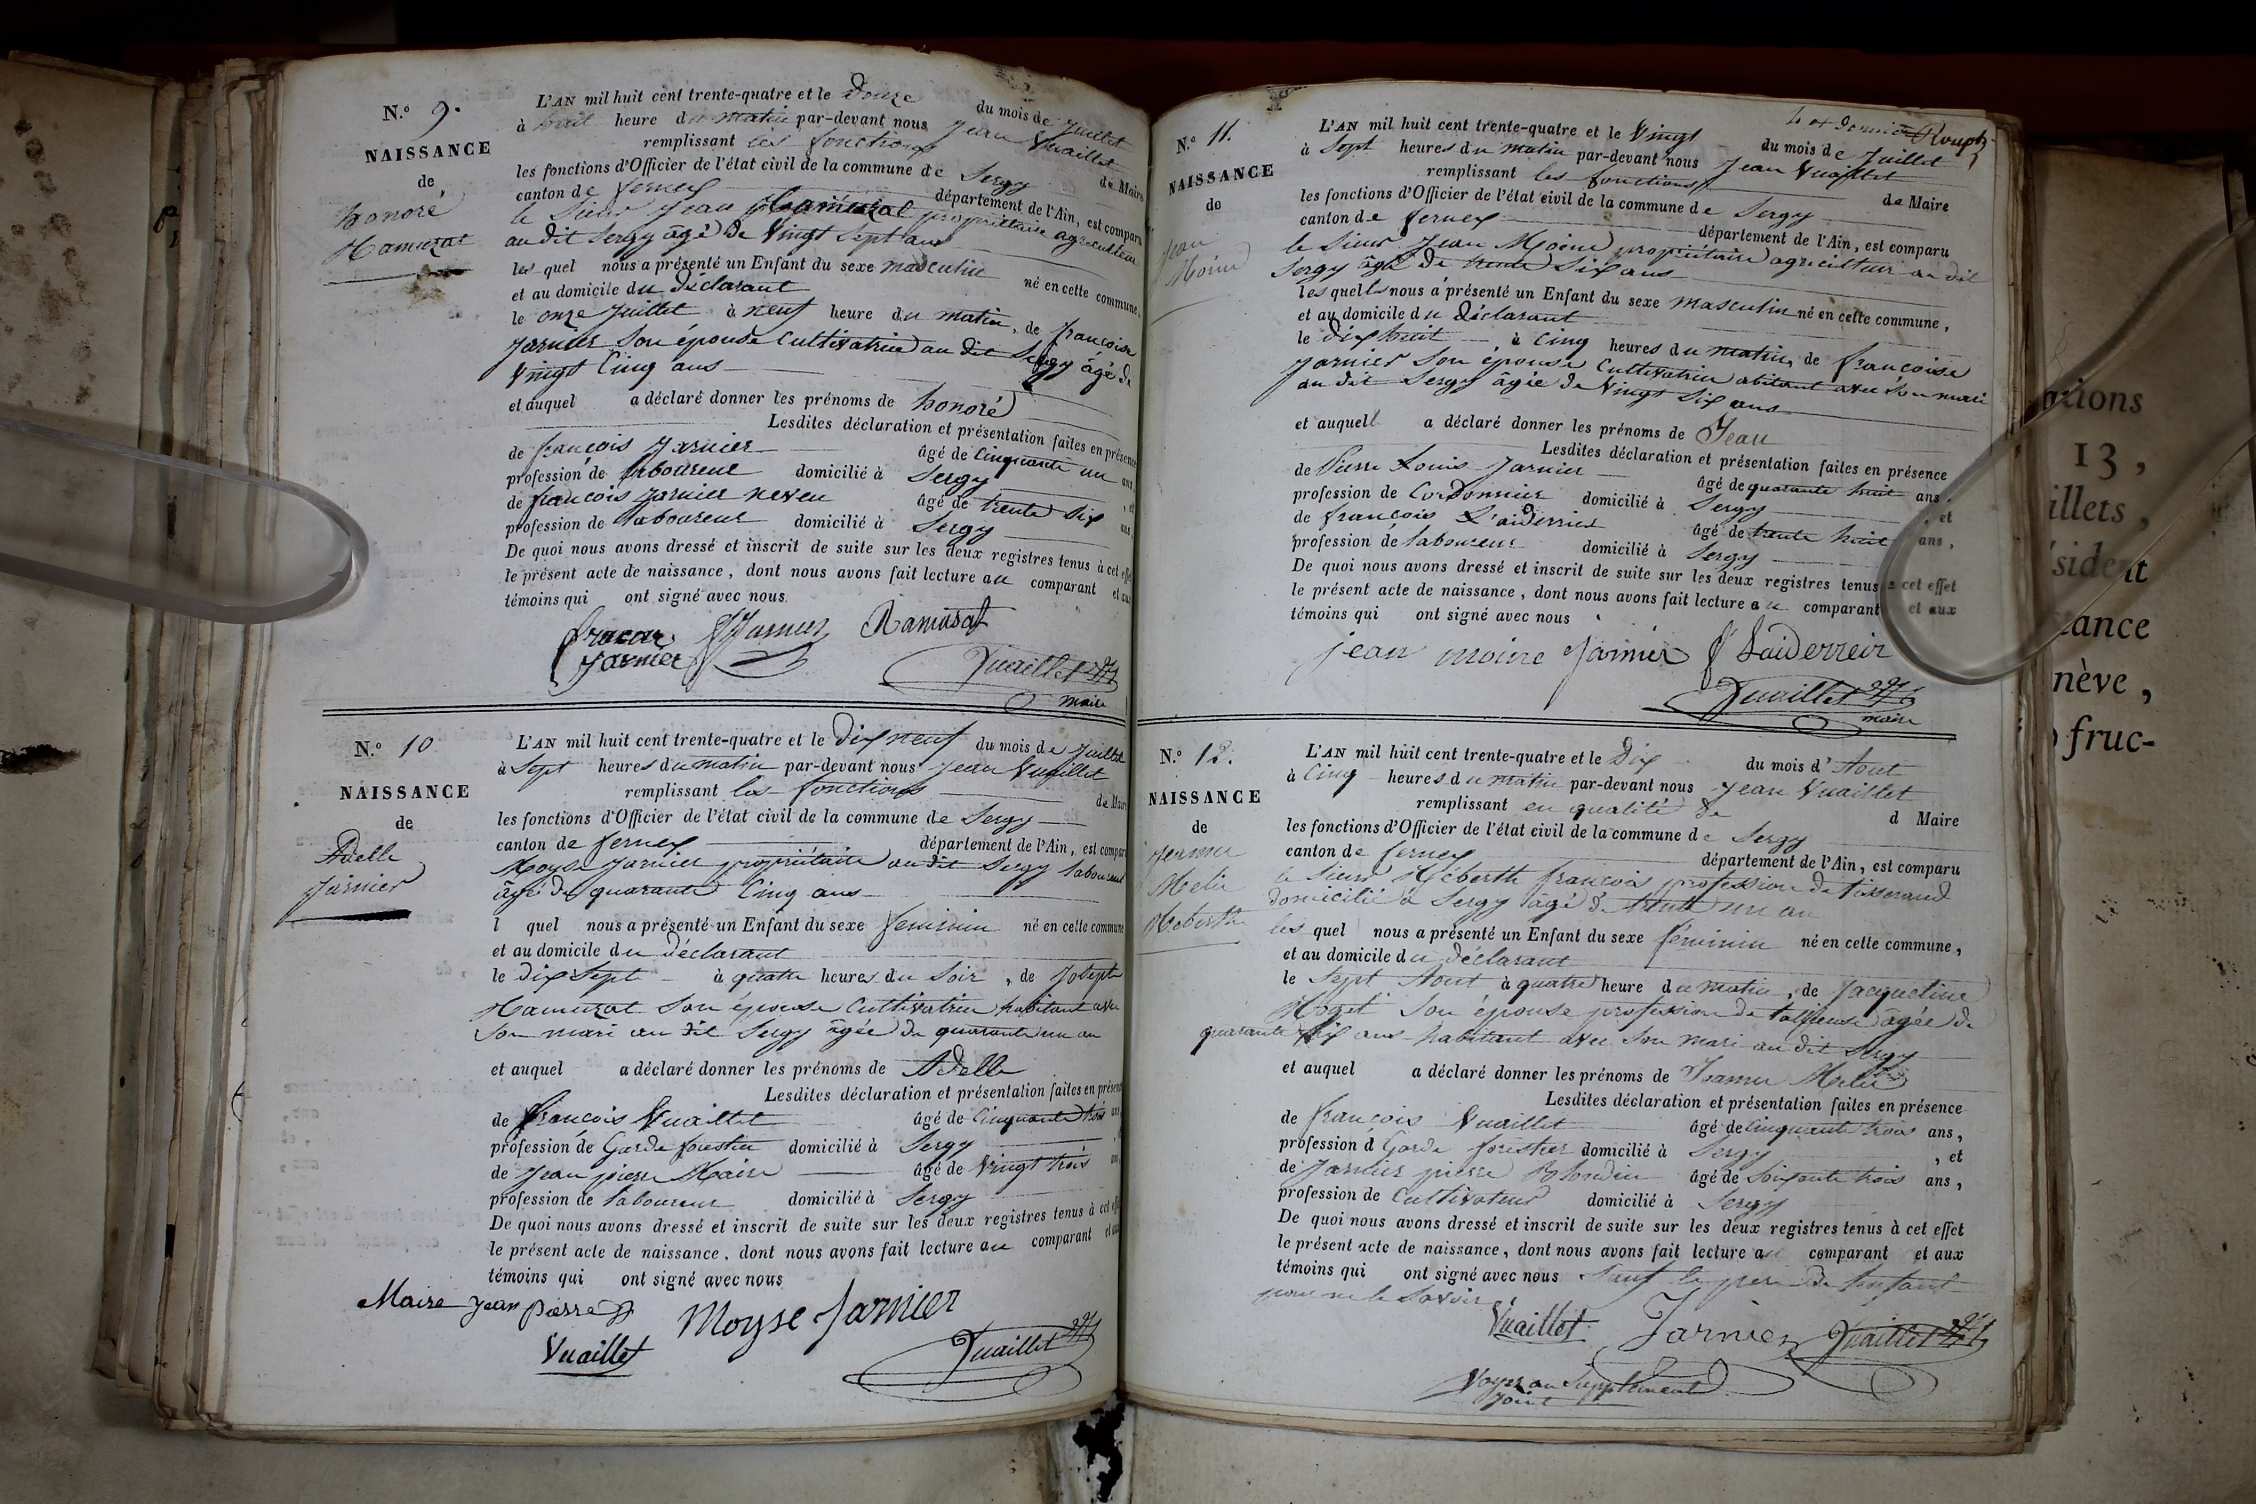 N.º 9.
NAISSANCE
de
honoré
Ramuzat
L'AN mil huit cent trente-quatre et le Douze du mois de Juillet
à huit heure du matin par-devant nous Jean Vuaillet
remplissant les fonctions de Maire
les fonctions d'Officier de l'état civil de la commune de Sergy
canton de ferney département de l'Ain, est comparu
le Sieur Jean Ramuzat propriétaire agriculteur
au dit Sergy âgé de Vingt Sept ans
lequel nous a présenté un Enfant du sexe masculin né en cette commune,
et au domicile du déclarant
le onze Juillet à neuf heure du matin, de françoise
Jarnier Son épouse Cultivatrice au dit Sergy âgé de
Vingt Cinq ans
et auquel a déclaré donner les prénoms de honoré
Lesdites déclaration et présentation faites en présence
de françois Jarnier âgé de Cinquante un ans
profession de laboureur domicilié à Sergy , et
de françois Jarnier neveu âgé de trente Six ans
profession de laboureur domicilié à Sergy
De quoi nous avons dressé et inscrit de suite sur les deux registres tenus à cet effet
le présent acte de naissance, dont nous avons fait lecture au comparant et aux
témoins qui ont signé avec nous
Jarnier Jarnier Ramusat
Vuaillet
maire
N.º 10
NAISSANCE
de
Adelle
Jarnier
L'AN mil huit cent trente-quatre et le Dix neuf du mois de Juillet
à Sept heures du matin par-devant nous Jean Vuaillet
remplissant les fonctions de Maire
les fonctions d'Officier de l'état civil de la commune de Sergy
canton de ferney département de l'Ain, est comparu
Moyse Jarnier propriétaire au dit Sergy laboureur
âgé de quarante Cinq ans
l quel nous a présenté un Enfant du sexe féminin né en cette commune
et au domicile du déclarant
le dix Sept à quatre heures du Soir, de Josepte
Ramuzat Son épouse Cultivatrice habitant avec
Son mari au dit Sergy âgée de quarante un an
et auquel a déclaré donner les prénoms de Adelle
Lesdites déclaration et présentation faites en présence
de françois Vuaillet âgé de Cinquante trois ans
profession de Garde forestier domicilié à Sergy
de Jean pierre Maire âgé de Vingt trois ans
profession de laboureur domicilié à Sergy
De quoi nous avons dressé et inscrit de suite sur les deux registres tenus à cet effet
le présent acte de naissance, dont nous avons fait lecture au comparant et aux
témoins qui ont signé avec nous
Maire Jean pierre Moyse Jarnier
Vuaillet Vuaillet
N.º 11.
NAISSANCE
de
Jean
Moine
L'AN mil huit cent trente-quatre et le Vingt du mois de Juillet
à Sept heures du matin par-devant nous Jean Vuaillet
remplissant les fonctions de Maire
les fonctions d'Officier de l'état civil de la commune de Sergy
canton de ferney département de l'Ain, est comparu
le Sieur Jean Moine propriétaire agriculteur au dit
Sergy âgé de trente Six ans
lesquells nous a présenté un Enfant du sexe masculin né en cette commune,
et au domicile du déclarant
le dix huit à Cinq heures du matin, de françoise
Jarnier Son épouse Cultivatrice abitant avec son mari
au dit Sergy âgée de Vingt Six ans
et auquell a déclaré donner les prénoms de Jean
Lesdites déclaration et présentation faites en présence
de Pierre Louis Jarnier âgé de quarante huit ans,
profession de Cordonnier domicilié à Sergy , et
de françois L'aiderrier âgé de trente huit ans,
profession de laboureur domicilié à Sergy
De quoi nous avons dressé et inscrit de suite sur les deux registres tenus à cet effet
le présent acte de naissance, dont nous avons fait lecture au comparant et aux
témoins qui ont signé avec nous
jean moine Jarnier f Laiderreir
Vuaillet
maire
N.º 12.
NAISSANCE
de
Melie
Heberth
L'AN mil huit cent trente-quatre et le Dix du mois d'Aout
à Cinq heures du matin par-devant nous Jean Vuaillet
remplissant en qualité de d Maire
les fonctions d'Officier de l'état civil de la commune de Sergy
canton de ferney département de l'Ain, est comparu
le Sieur Heberth françois profession de tisserand
domicilié à Sergy âgé de trente un an
lesquel nous a présenté un Enfant du sexe féminin né en cette commune,
et au domicile du déclarant
le Sept Aout à quatre heure du matin, de Jacqueline
Son épouse profession de tallieuse âgée de
quarante Six ans habitant avec Son mari au dit Sergy
et auquel a déclaré donner les prénoms de Melie
Lesdites déclaration et présentation faites en présence
de françois Vuaillet âgé de Cinquante trois ans,
profession d Garde forestier domicilié à Sergy , et
de Jarnier pierre Blondin âgé de Soixante trois ans,
profession de Cultivateur domicilié à Sergy
De quoi nous avons dressé et inscrit de suite sur les deux registres tenus à cet effet
le présent acte de naissance, dont nous avons fait lecture au comparant et aux
témoins qui ont signé avec nous Sauf le pere de l'enfant
pour ne le Savoir
Vuaillet Jarnier Vuaillet
Voyez au Supplément
joint
13,
illets,
nève,
fruc-